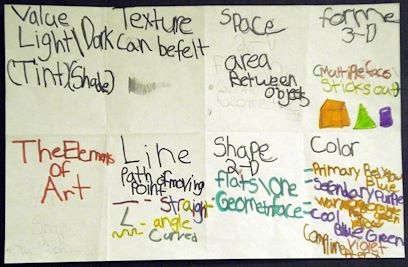 Value
Light\Dark
(Tint)(Shade)
Texture
can be felt
Space
area
Between
objects
forme
3-D
(Multiple faces\
Sticks out)
The Elements
of
Art
Line
Path of moving
Point
Straight
angle
Curved
Shape
2-D
flats\one
Geometri face
Color
Primary Red Yellow
Blue
Secondary Purple
Warm
Cool Blue Green
Violet